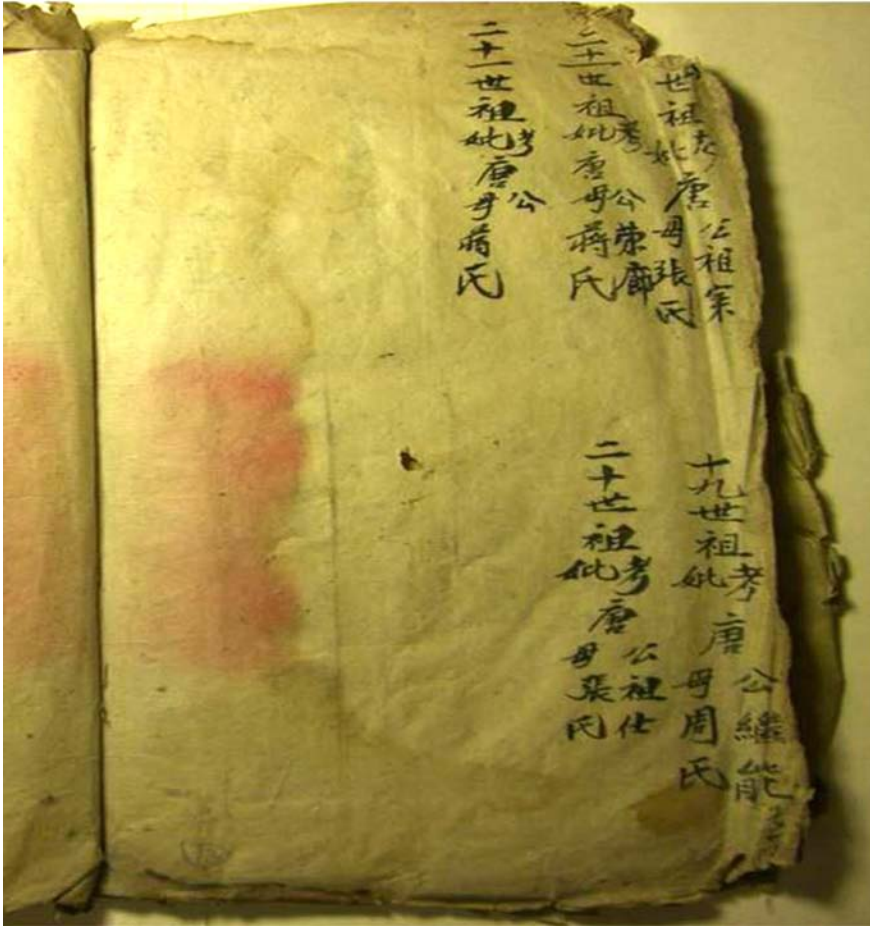 世祖考妣唐公祖母張氏
二十一世祖考妣唐公榮廊母蔣氏
二十一世祖考妣唐公母蔣氏
十九世祖考妣唐公繼能母周氏
二十世祖考妣唐公祖仕母張氏